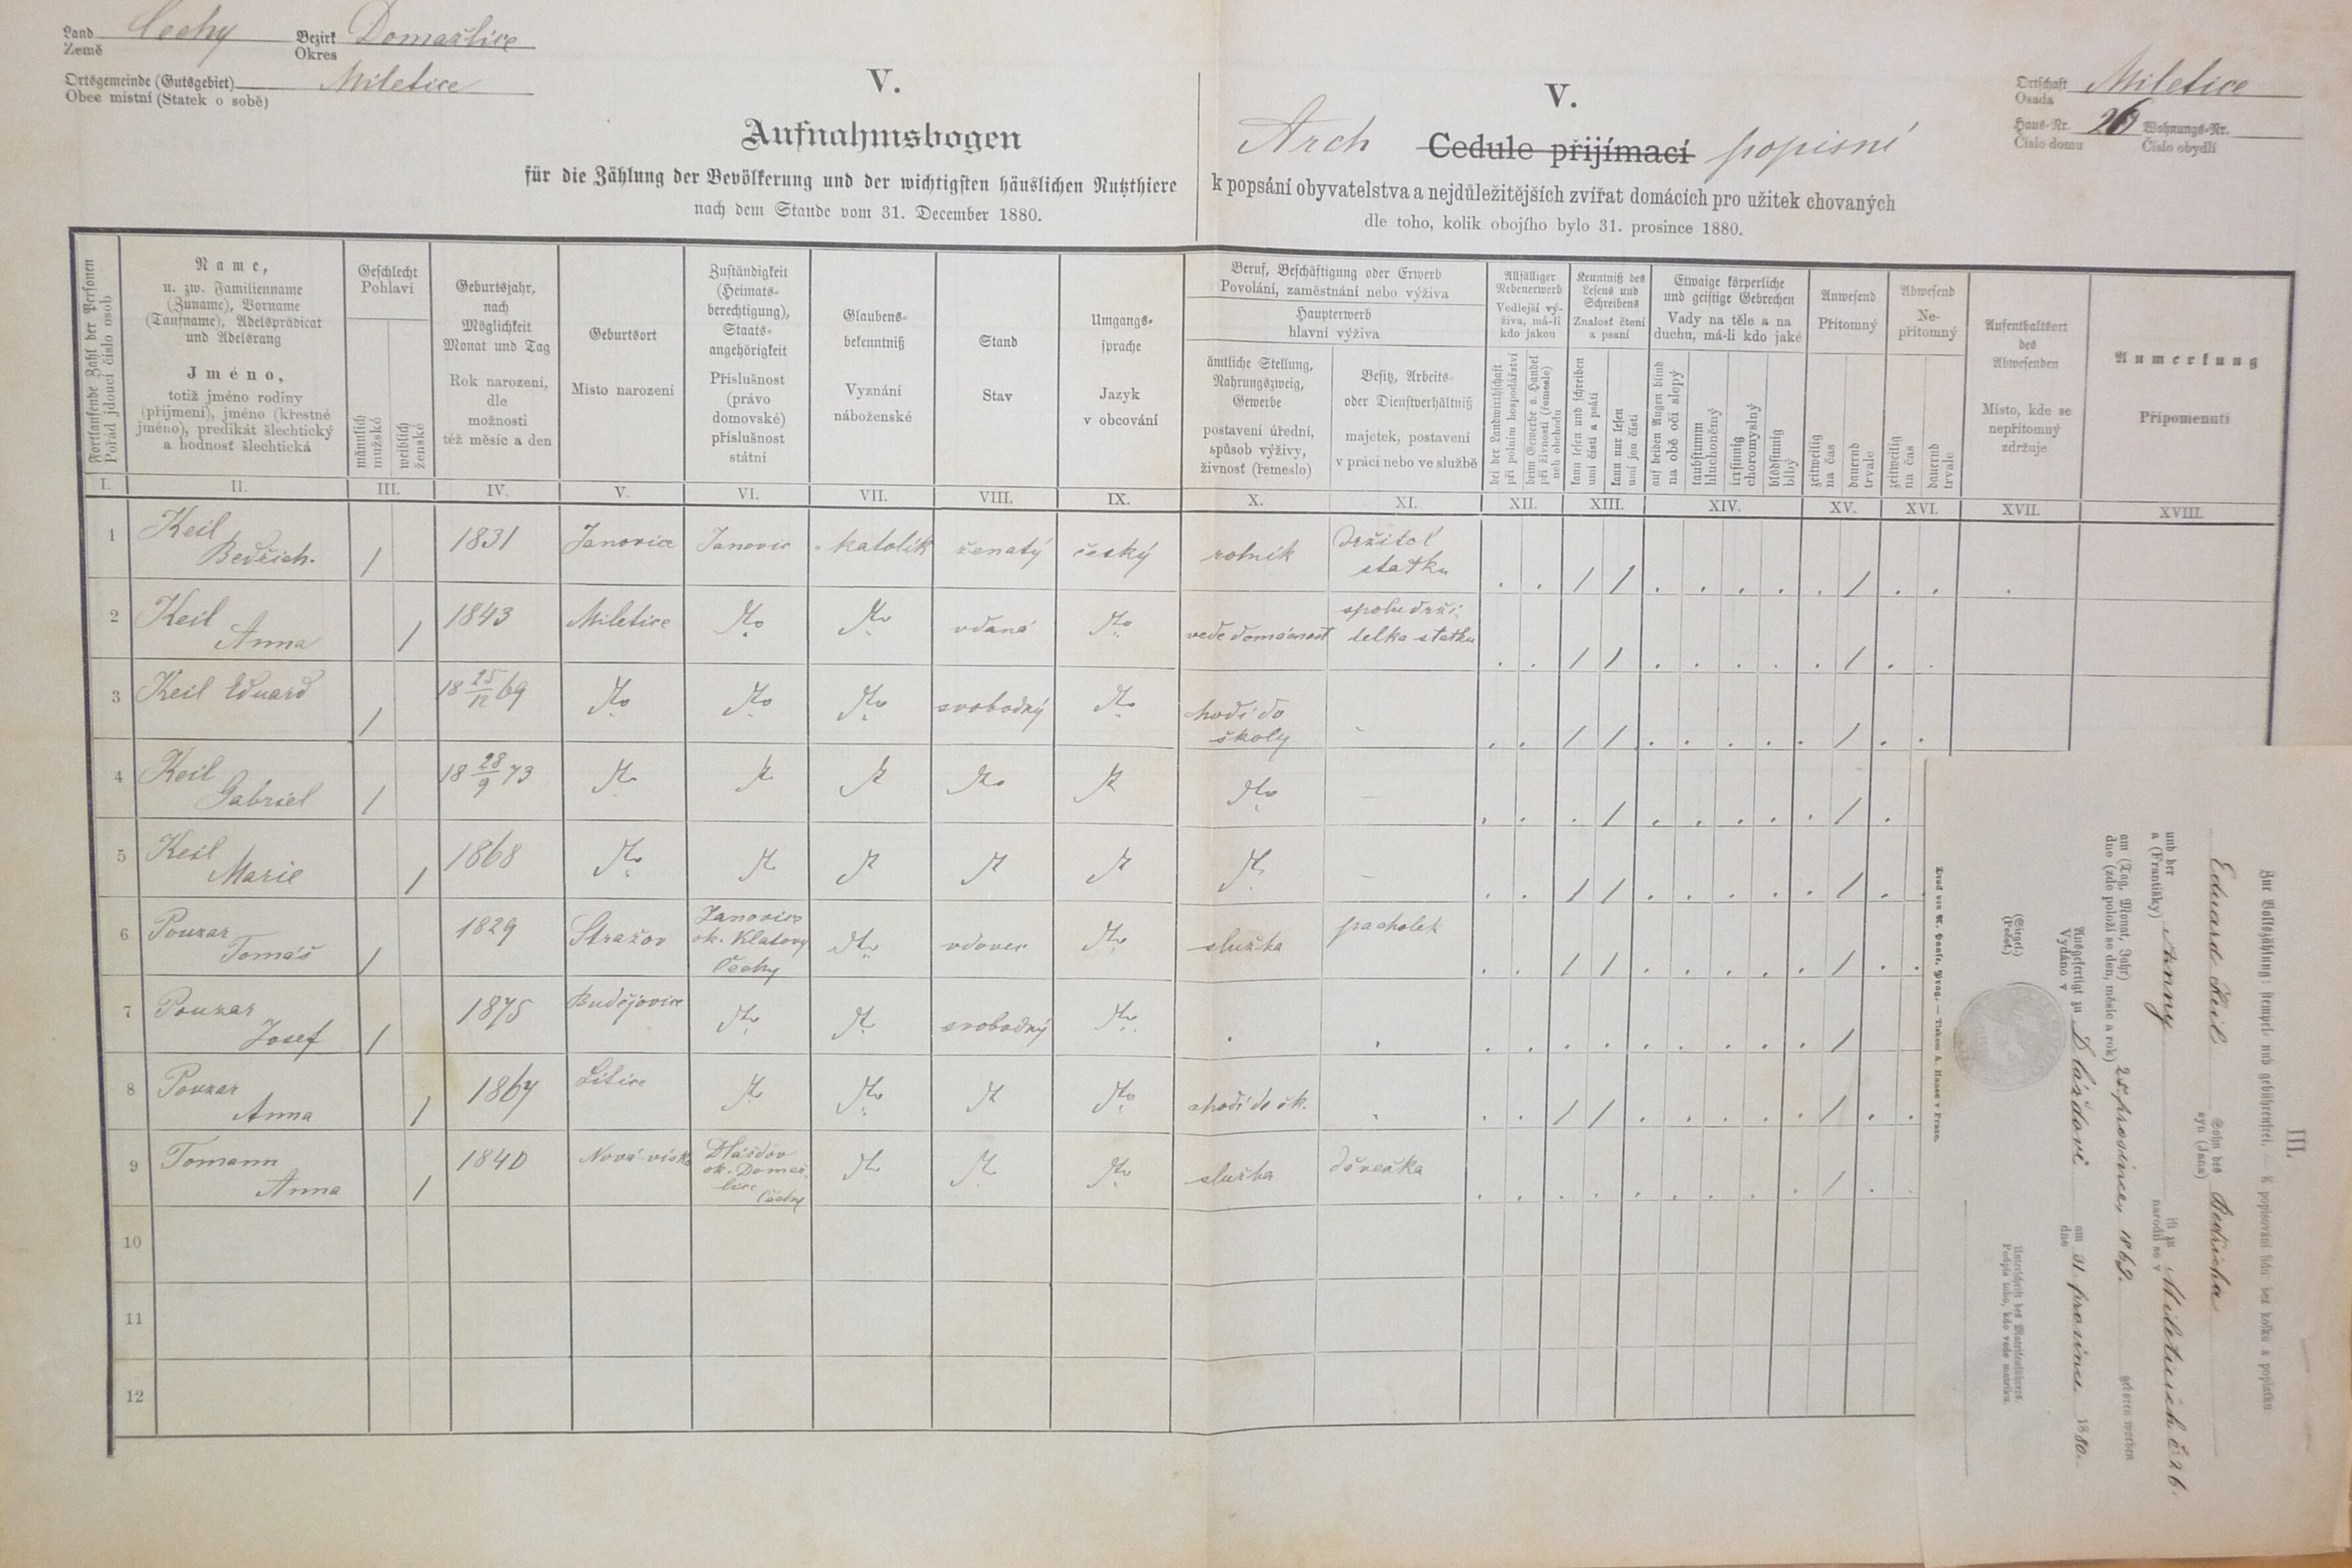 Land Čechy Bezirk Domažlice
Země Okres
Ortsgemeinde (Gutsgebiet) Miletice
Obec místní (Statek o sobě)
V.
Aufnahmsbogen
für die Zählung der Bevölkerung und der wichtigsten häuslichen Nutzthiere
nach dem Stande vom 31. December 1880.
V.
Arch Cedule přijímací popisní
k popsání obyvatelstva a nejdůležitějších zvířat domácích pro užitek chovaných
dle toho, kolik obojího bylo 31. prosince 1880.
Ortschaft Miletice
Osada
Haus-Nr. 26 Wohnungs-Nr.
Číslo domu Číslo obydlí
Fortlaufende Zahl der Personen
Pořád jdoucí číslo osob
Name,
u. zw. Familienname
(Zuname), Vorname
(Taufname), Adelsprädicat
und Adelsrang
Jméno,
totiž jméno rodiny
(příjmení), jméno (křestné
jméno), predikát šlechtický
a hodnosť šlechtická
Geschlecht
Pohlaví
männlich
mužské
weiblich
ženské
Geburtsjahr,
nach
Möglichkeit
Monat und Tag
Rok narození,
dle
možnosti
též měsíc a den
Geburtsort
Místo narození
Zuständigkeit
(Heimats-
berechtigung),
Staats-
angehörigkeit
Příslušnost
(právo
domovské)
příslušnost
státní
Glaubens-
bekenntniß
Vyznání
náboženské
Stand
Stav
Umgangs-
sprache
Jazyk
v obcování
Beruf, Beschäftigung oder Erwerb
Povolání, zaměstnání nebo výživa
Haupterwerb
hlavní výživa
ämtliche Stellung,
Nahrungszweig,
Gewerbe
postavení úřední,
spůsob výživy,
živnosť (řemeslo)
Besitz, Arbeits-
oder Dienstverhältniß
majetek, postavení
v práci nebo ve službě
Allfälliger
Nebenerwerb
Vedlejší vý-
živa, má-li
kdo jakou
bei der Landwirthschaft
při polním hospodářství
beim Gewerbe o. Handel
při živnosti (řemesle)
neb obchodu
Kenntniß des
Lesens und
Schreibens
Znalosť čtení
a psaní
kann lesen und schreiben
umí čísti a psáti
kann nur lesen
umí jen čísti
Etwaige körperliche
und geistige Gebrechen
Vady na těle a na
duchu, má-li kdo jaké
auf beiden Augen blind
na obě oči slepý
taubstumm
hluchoněmý
irrsinnig
choromyslný
blödsinnig
blbý
Anwesend
Přítomný
zeitweilig
na čas
dauernd
trvale
Abwesend
Ne-
přítomný
zeitweilig
na čas
dauernd
trvale
Aufenthaltsort
des
Abwesenden
Místo, kde se
nepřítomný
zdržuje
Anmerkung
Připomenutí
I. II. III. IV. V. VI. VII. VIII. IX. X. XI. XII. XIII. XIV. XV. XVI. XVII. XVIII.
1 Keil Bedřich. / 1831 Janovice Janovic katolík ženatý český rolník držitel statku / / /
2 Keil Anna / 1843 Miletice vdaná vede domácnost spoludržitelka statku / / /
3 Keil Eduard / 18 25/12 69 svobodný chodí do školy / / /
4 Keil Gabriel / 18 28/9 73 / /
5 Keil Marie / 1868 / / /
6 Pouzar Tomáš / 1829 Stražov Janovice ok. Klatovy Čechy vdovec služba pacholek / / /
7 Pouzar Josef / 1875 Budějovice svobodný /
8 Pouzar Anna / 1867 Litice chodí do šk. / / /
9 Tomann Anna / 1840 Nová víska Dlážďov ok. Domažlice Čechy služba děvečka /
10
11
12
Druck von A. Haase, Prag. — Tiskem A. Haase v Praze.
III.
Zur Volkszählung: stempel- und gebührenfrei. — K popisování lidu bez kolku a poplatku.
Eduard Keil Sohn des Bedřicha
syn (Jana)
und der Anny ist zu Mileticích č. 26.
a (Františky) narodil se v
am (Tag, Monat, Jahr) 25. prosince, 1869. geboren worden
dne (zde položí se den, měsíc a rok)
Ausgefertigt zu Dlážďově am 31. prosince 1880.
Vydáno v dne
(Siegel)
(Pečeť)
Unterschrift des Matrikenführers.
Podpis toho, kdo vede matriku.